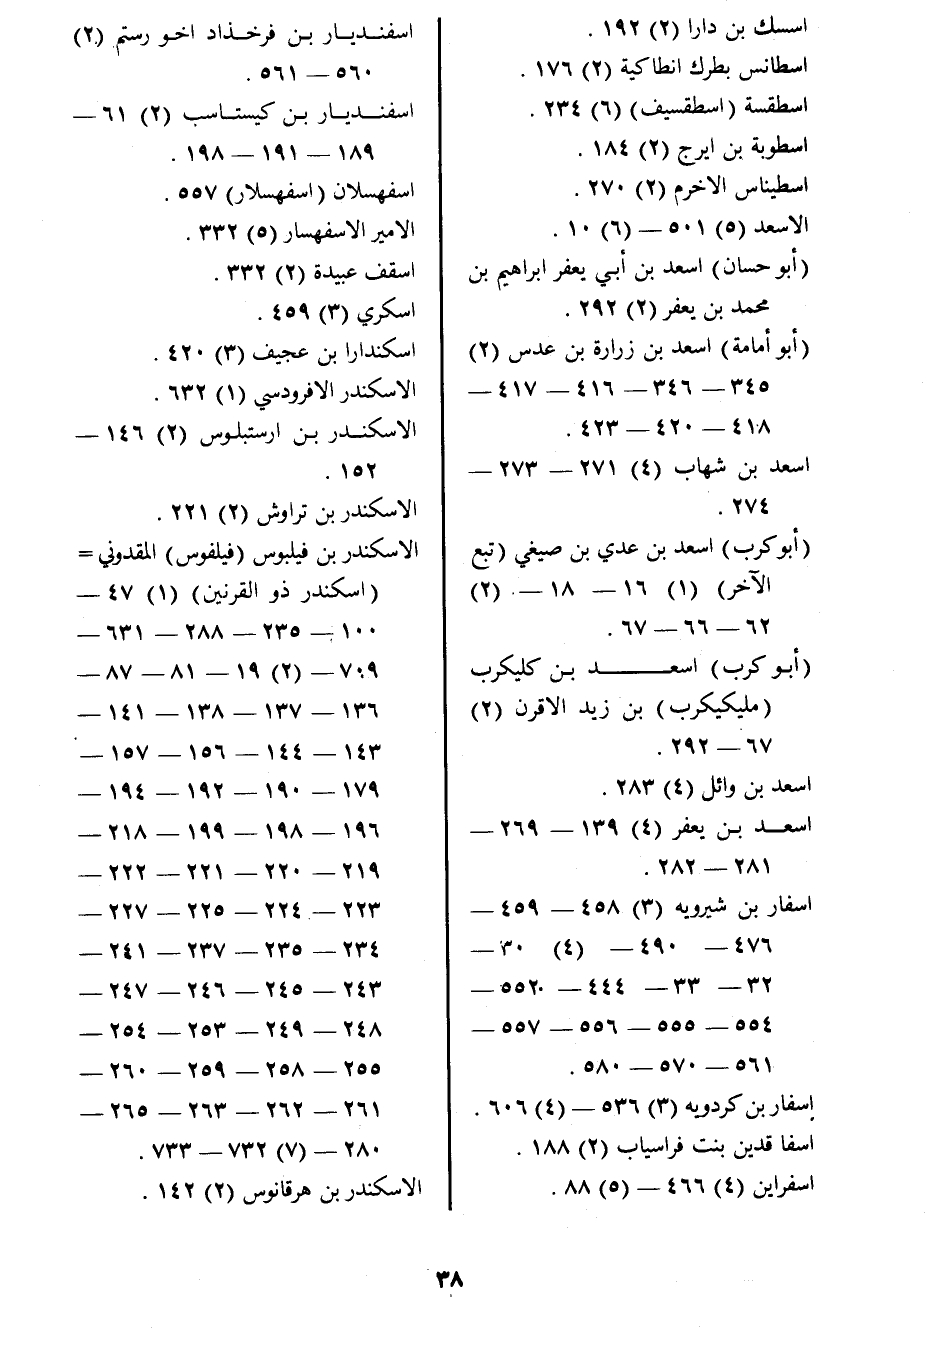 اسسك بن دارا (٢) ١٩٢ .
اسطانس بطرك انطاكية (٢) ١٧٦ .
اسطقسة (اسطقسيف) (٦) ٢٣٤ .
اسطوبة بن ايرج (٢) ١٨٤ .
اسطيناس الاخرم (٢) ٢٧٠ .
الاسعد (٥) ٥٠١ — (٦) ١٠ .
(أبو حسان) اسعد بن أبي يعفر ابراهيم بن
محمد بن يعفر (٢) ٢٩٢ .
(أبو أمامة) اسعد بن زرارة بن عدس (٢)
٣٤٥ — ٣٤٦ — ٤١٦ — ٤١٧ —
٤١٨ — ٤٢٠ — ٤٢٣ .
اسعد بن شهاب (٤) ٢٧١ — ٢٧٣ —
٢٧٤ .
(أبو كرب) اسعد بن عدي بن صيغي (تبع
الآخر) (١) ١٦ — ١٨ — (٢)
٦٢ — ٦٦ — ٦٧ .
(أبو كرب) اسعد بن كليكرب
(مليكيكرب) بن زيد الاقرن (٢)
٦٧ — ٢٩٢ .
اسعد بن وائل (٤) ٢٨٣ .
اسعد بن يعفر (٤) ١٣٩ — ٢٦٩ —
٢٨١ — ٢٨٢ .
اسفار بن شيرويه (٣) ٤٥٨ — ٤٥٩ —
٤٧٦ — ٤٩٠ — (٤) ٣٠ —
٣٢ — ٣٣ — ٤٤٤ — ٥٥٢ —
٥٥٤ — ٥٥٥ — ٥٥٦ — ٥٥٧ —
٥٦١ — ٥٧٠ — ٥٨٠ .
إسفار بن كردويه (٣) ٥٣٦ — (٤) ٦٠٦ .
اسفا قدين بنت فراسياب (٢) ١٨٨ .
اسفراين (٤) ٤٦٦ — (٥) ٨٨ .
اسفنديار بن فرخذاد اخو رستم (٢)
٥٦٠ — ٥٦١ .
اسفنديار بن كيستاسب (٢) ٦١ —
١٨٩ — ١٩١ — ١٩٨ .
اسفهسلان (اسفهسلار) ٥٥٧ .
الامير الاسفهسار (٥) ٣٣٢ .
اسقف عبيدة (٢) ٣٣٢ .
اسكري (٣) ٤٥٩ .
اسكندارا بن عجيف (٣) ٤٢٠ .
الاسكندر الافرودسي (١) ٦٣٢ .
الاسكندر بن ارستبلوس (٢) ١٤٦ —
١٥٢ .
الاسكندر بن تراوش (٢) ٢٢١ .
الاسكندر بن فيلبوس (فيلفوس) المقدوني =
(اسكندر ذو القرنين) (١) ٤٧ —
١٠٠ — ٢٣٥ — ٢٨٨ — ٦٣١ —
٧٠٩ — (٢) ١٩ — ٨١ — ٨٧ —
١٣٦ — ١٣٧ — ١٣٨ — ١٤١ —
١٤٣ — ١٤٤ — ١٥٦ — ١٥٧ —
١٧٩ — ١٩٠ — ١٩٢ — ١٩٤ —
١٩٦ — ١٩٨ — ١٩٩ — ٢١٨ —
٢١٩ — ٢٢٠ — ٢٢١ — ٢٢٢ —
٢٢٣ — ٢٢٤ — ٢٢٥ — ٢٢٧ —
٢٣٤ — ٢٣٥ — ٢٣٧ — ٢٤١ —
٢٤٣ — ٢٤٥ — ٢٤٦ — ٢٤٧ —
٢٤٨ — ٢٤٩ — ٢٥٣ — ٢٥٤ —
٢٥٥ — ٢٥٨ — ٢٥٩ — ٢٦٠ —
٢٦١ — ٢٦٢ — ٢٦٣ — ٢٦٥ —
٢٨٠ — (٧) ٧٣٢ — ٧٣٣ .
الاسكندر بن هرقانوس (٢) ١٤٢ .
٣٨